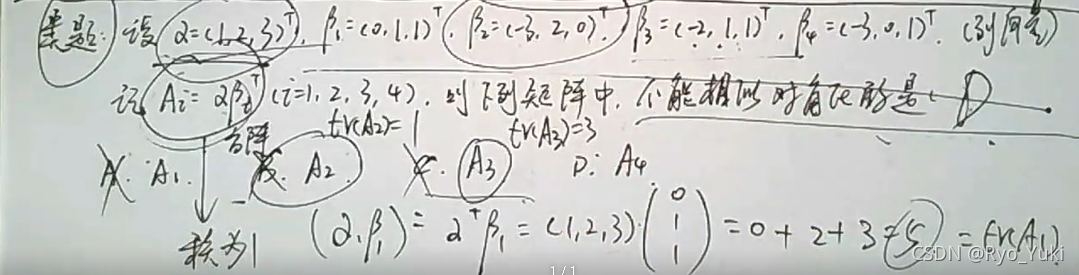 类题: 设 α=(1,2,3)ᵀ, β₁=(0,1,1)ᵀ, β₂=(-3,2,0)ᵀ, β₃=(-2,1,1)ᵀ, β₄=(-3,0,1)ᵀ. (列向量)
记 Aᵢ=αβᵢᵀ (i=1,2,3,4), 则下列矩阵中, 不能相似对角化的是( D
方阵 tr(A₂)=1 tr(A₃)=3
A: A₁. B: A₂ C: A₃ D: A₄
秩为1 (α,β₁)=αᵀβ₁=(1,2,3)(0 1 1)=0+2+3=5=tr(A₁)
CSDN @Ryo_Yuki
1/1